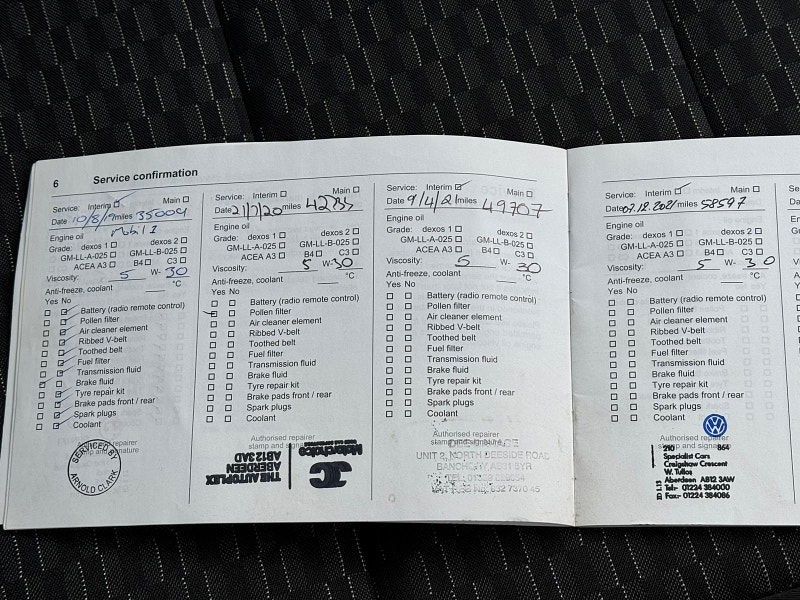 6 Service confirmation
Service: Interim Main
Date 10/8/19 miles 35004
Engine oil Mobil 1
Grade: dexos 1 dexos 2
GM-LL-A-025 GM-LL-B-025
ACEA A3 B4 C3
Viscosity: 5 W- 30
Anti-freeze, coolant °C
Yes No
Battery (radio remote control)
Pollen filter
Air cleaner element
Ribbed V-belt
Toothed belt
Fuel filter
Transmission fluid
Brake fluid
Tyre repair kit
Brake pads front / rear
Spark plugs
Coolant
Authorised repairer
stamp and signature
SERVICED BY
ARNOLD CLARK
Service: Interim Main
Date 21/7/20 miles
Engine oil
Grade: dexos 1 dexos 2
GM-LL-A-025 GM-LL-B-025
ACEA A3 B4 C3
Viscosity: 5 W- 30
Anti-freeze, coolant °C
Yes No
Battery (radio remote control)
Pollen filter
Air cleaner element
Ribbed V-belt
Toothed belt
Fuel filter
Transmission fluid
Brake fluid
Tyre repair kit
Brake pads front / rear
Spark plugs
Coolant
Authorised repairer
stamp and signature
Motorchoice
THE AUTOPLEX
ABERDEEN
AB12 3AD
Service: Interim Main
Date 9/4/21 miles 49707
Engine oil
Grade: dexos 1 dexos 2
GM-LL-A-025 GM-LL-B-025
ACEA A3 B4 C3
Viscosity: 5 W- 30
Anti-freeze, coolant °C
Yes No
Battery (radio remote control)
Pollen filter
Air cleaner element
Ribbed V-belt
Toothed belt
Fuel filter
Transmission fluid
Brake fluid
Tyre repair kit
Brake pads front / rear
Spark plugs
Coolant
Authorised repairer
stamp and signature
UNIT 2, NORTH DEESIDE ROAD
Service: Interim Main
Date 07.12.2021 miles 58597
Engine oil
Grade: dexos 1 dexos 2
GM-LL-A-025 GM-LL-B-025
ACEA A3 B4 C3
Viscosity: 5 W- 30
Anti-freeze, coolant °C
Yes No
Battery (radio remote control)
Pollen filter
Air cleaner element
Ribbed V-belt
Toothed belt
Fuel filter
Transmission fluid
Brake fluid
Tyre repair kit
Brake pads front / rear
Spark plugs
Coolant
Authorised repairer
stamp and signature
210 864
Specialist Cars
Craigshaw Crescent
W. Tullos
Aberdeen AB12 3AW
Tel:- 01224 384000
Fax:- 01224 384086